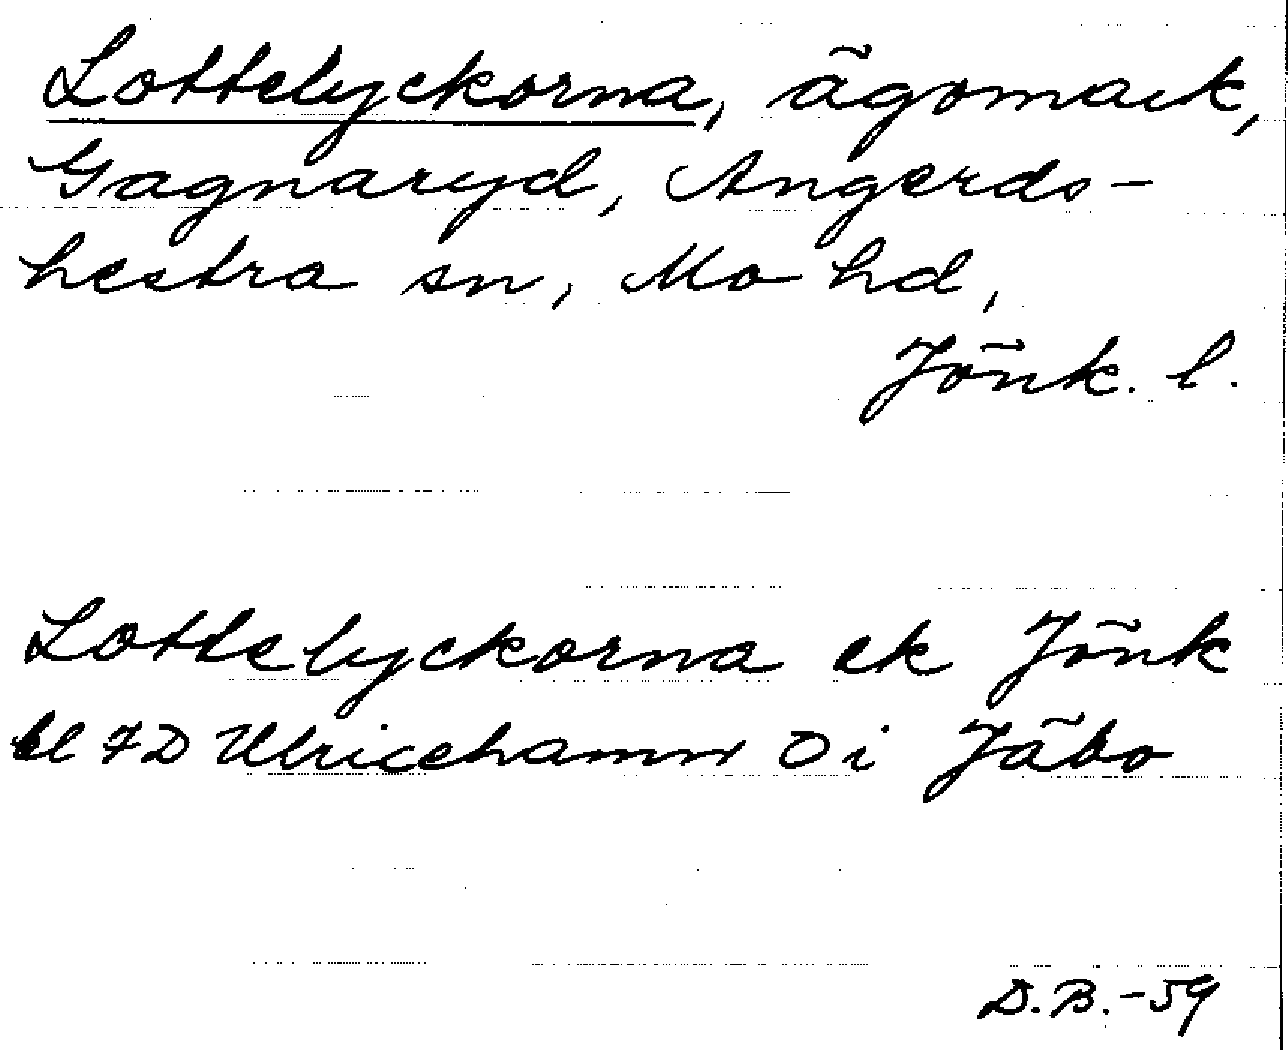 Lottelyckorna, ägomark,
Gagnaryd, Angerds-
hestra sn, Mo hd,
Jönk. l.
Lottelyckorna ek Jönk
7D Ulricehamn Ö i Jäbo
D.B.-59